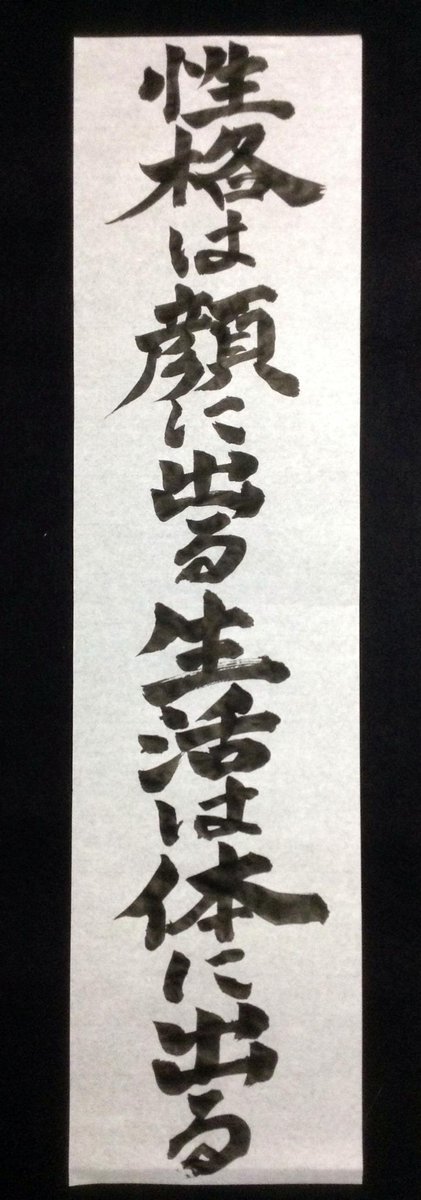 性格は顔に出る生活は体に出る